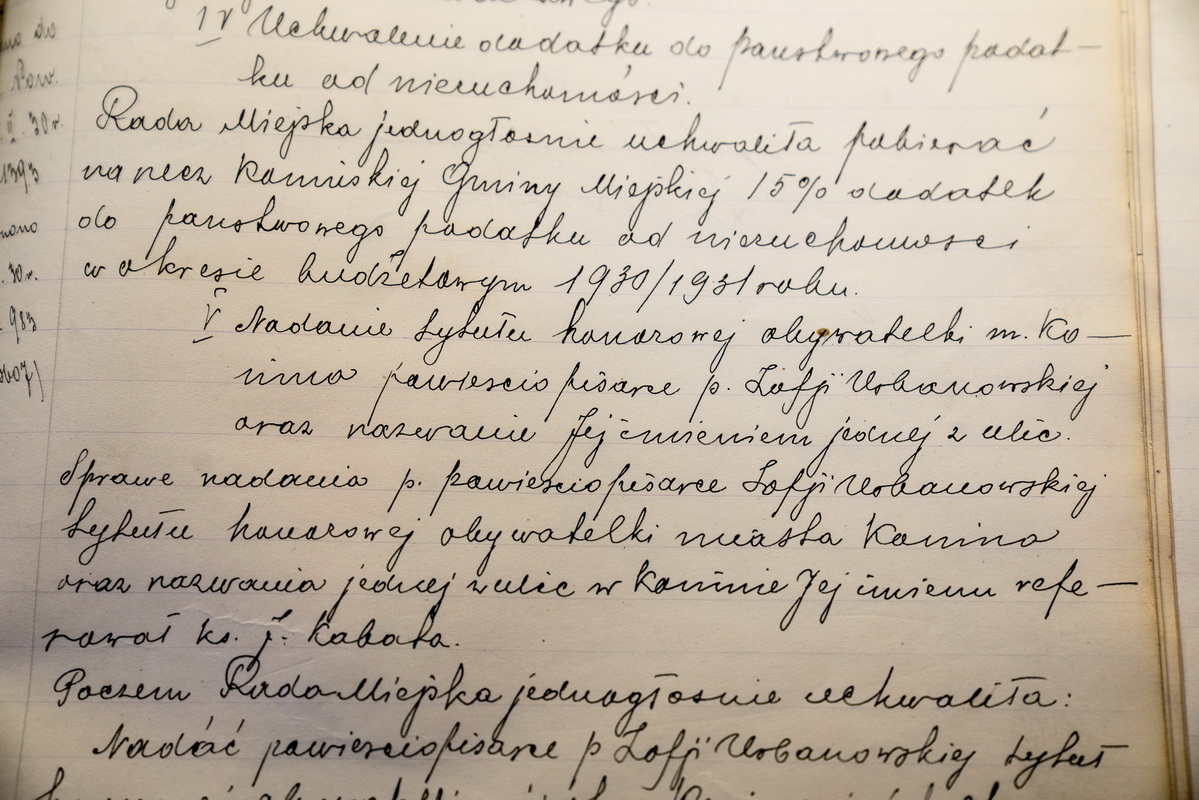 IV Uchwalenie dodatku do państwowego podat-
ku od nieruchomości.
Rada Miejska jednogłośnie uchwaliła pobierać
na rzecz Konińskiej Gminy Miejskiej 15% dodatek
do państwowego podatku od nieruchomości
w okresie budżetowym 1930/1931 roku.
V Nadanie tytułu honorowej obywatelki m. Ko-
nina powieściopisarce p. Zofji Urbanowskiej
oraz nazwanie Jej imieniem jednej z ulic.
Sprawę nadania p. powieściopisarce Zofji Urbanowskiej
tytułu honorowej obywatelki miasta Konina
oraz nazwania jednej z ulic w Koninie Jej imieniu refe-
rował ks. J. Kabata.
Poczem Rada Miejska jednogłośnie uchwaliła:
Nadać powieściopisarce p Zofji Urbanowskiej tytuł
do
Pow.
30 r.
1393
30 r.
983